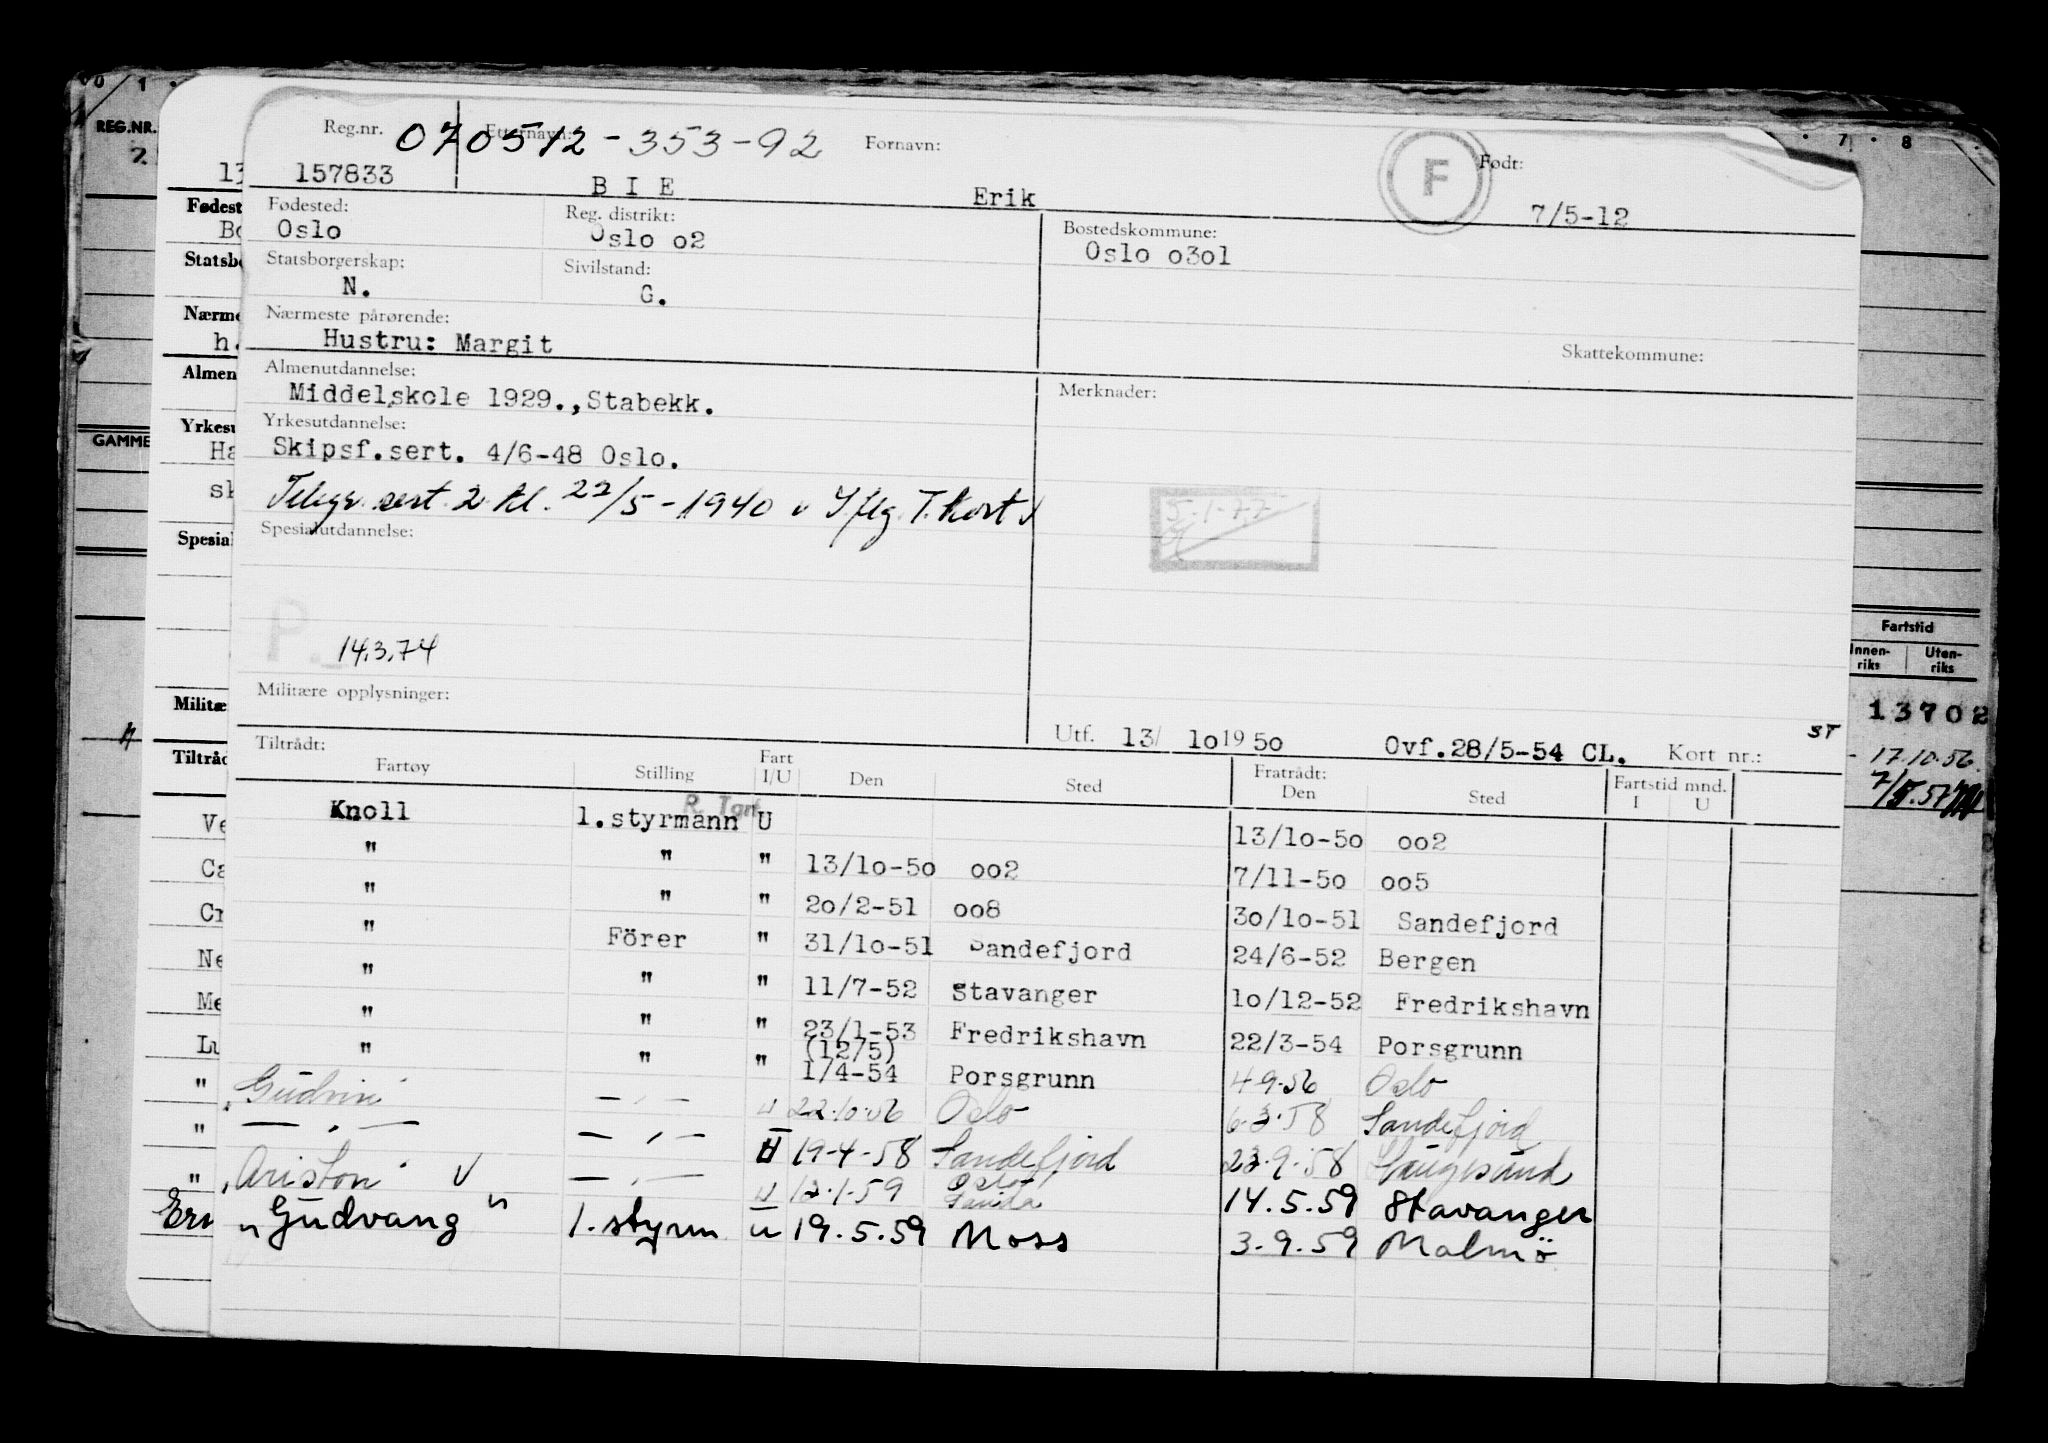 Reg.nr. Etternavn: Fornavn: Født:
070512-353-92
157833 BIE Erik F 7/5-12
Fødested: Reg. distrikt: Bostedskommune:
Oslo Oslo o2 Oslo o3o1
Statsborgerskap: Sivilstand:
N. G.
Nærmeste pårørende:
Hustru: Margit
Skattekommune:
Almenutdannelse: Merknader:
Middelskole 1929.,Stabekk.
Yrkesutdannelse:
Skipsf.sert. 4/6-48 Oslo.
Telegr. sert. 2 kl. 22/5-1940 T. Kort
5-1-77
Spesialutdannelse:
P.
14.3.74
Militære opplysninger:
Utf. 13/ 1o 19 5o Ovf.28/5-54 CL. Kort nr.: ST
Tiltrådt: Fratrådt: Fartstid mnd.
Fartøy Stilling Fart I/U Den Sted Den Sted I U
R. Tgrf
Knoll 1.styrmann U 13/1o-5o oo2
" " " 13/1o-5o oo2 7/11-5o oo5
" " " 2o/2-51 oo8 3o/1o-51 Sandefjord
" Förer " 31/1o-51 Sandefjord 24/6-52 Bergen
" " " 11/7-52 Stavanger 1o/12-52 Fredrikshavn
" " " 23/1-53 Fredrikshavn 22/3-54 Porsgrunn
(12/5)
" " " 1/4-54 Porsgrunn 4-9-56 Oslo
Gudrin — " — U 22.10.56 Oslo 6.3.58 Sandefjord
— " — — " — U 19-4-58 Sandefjord 23.9.58 Haugesund
Ariston V — " — U 12.1.59 Oslo Sauda 14.5.59 Stavanger
"Gudvang" 1. styrm U 19.5.59 Moss 3.9.59 Malmö
REG.NR.
Fødest
Bo
Statsbo
Nærme
h.
Almen
Yrkesu
GAMME
Ha
sk
Spesial
Militæ
Tiltråd
Ve
Ca
Cr
Ne
Me
Lu
"
"
"
Ern
0 1
7 8
Fartstid
Innen-riks Uten-riks
13702
17.10.56